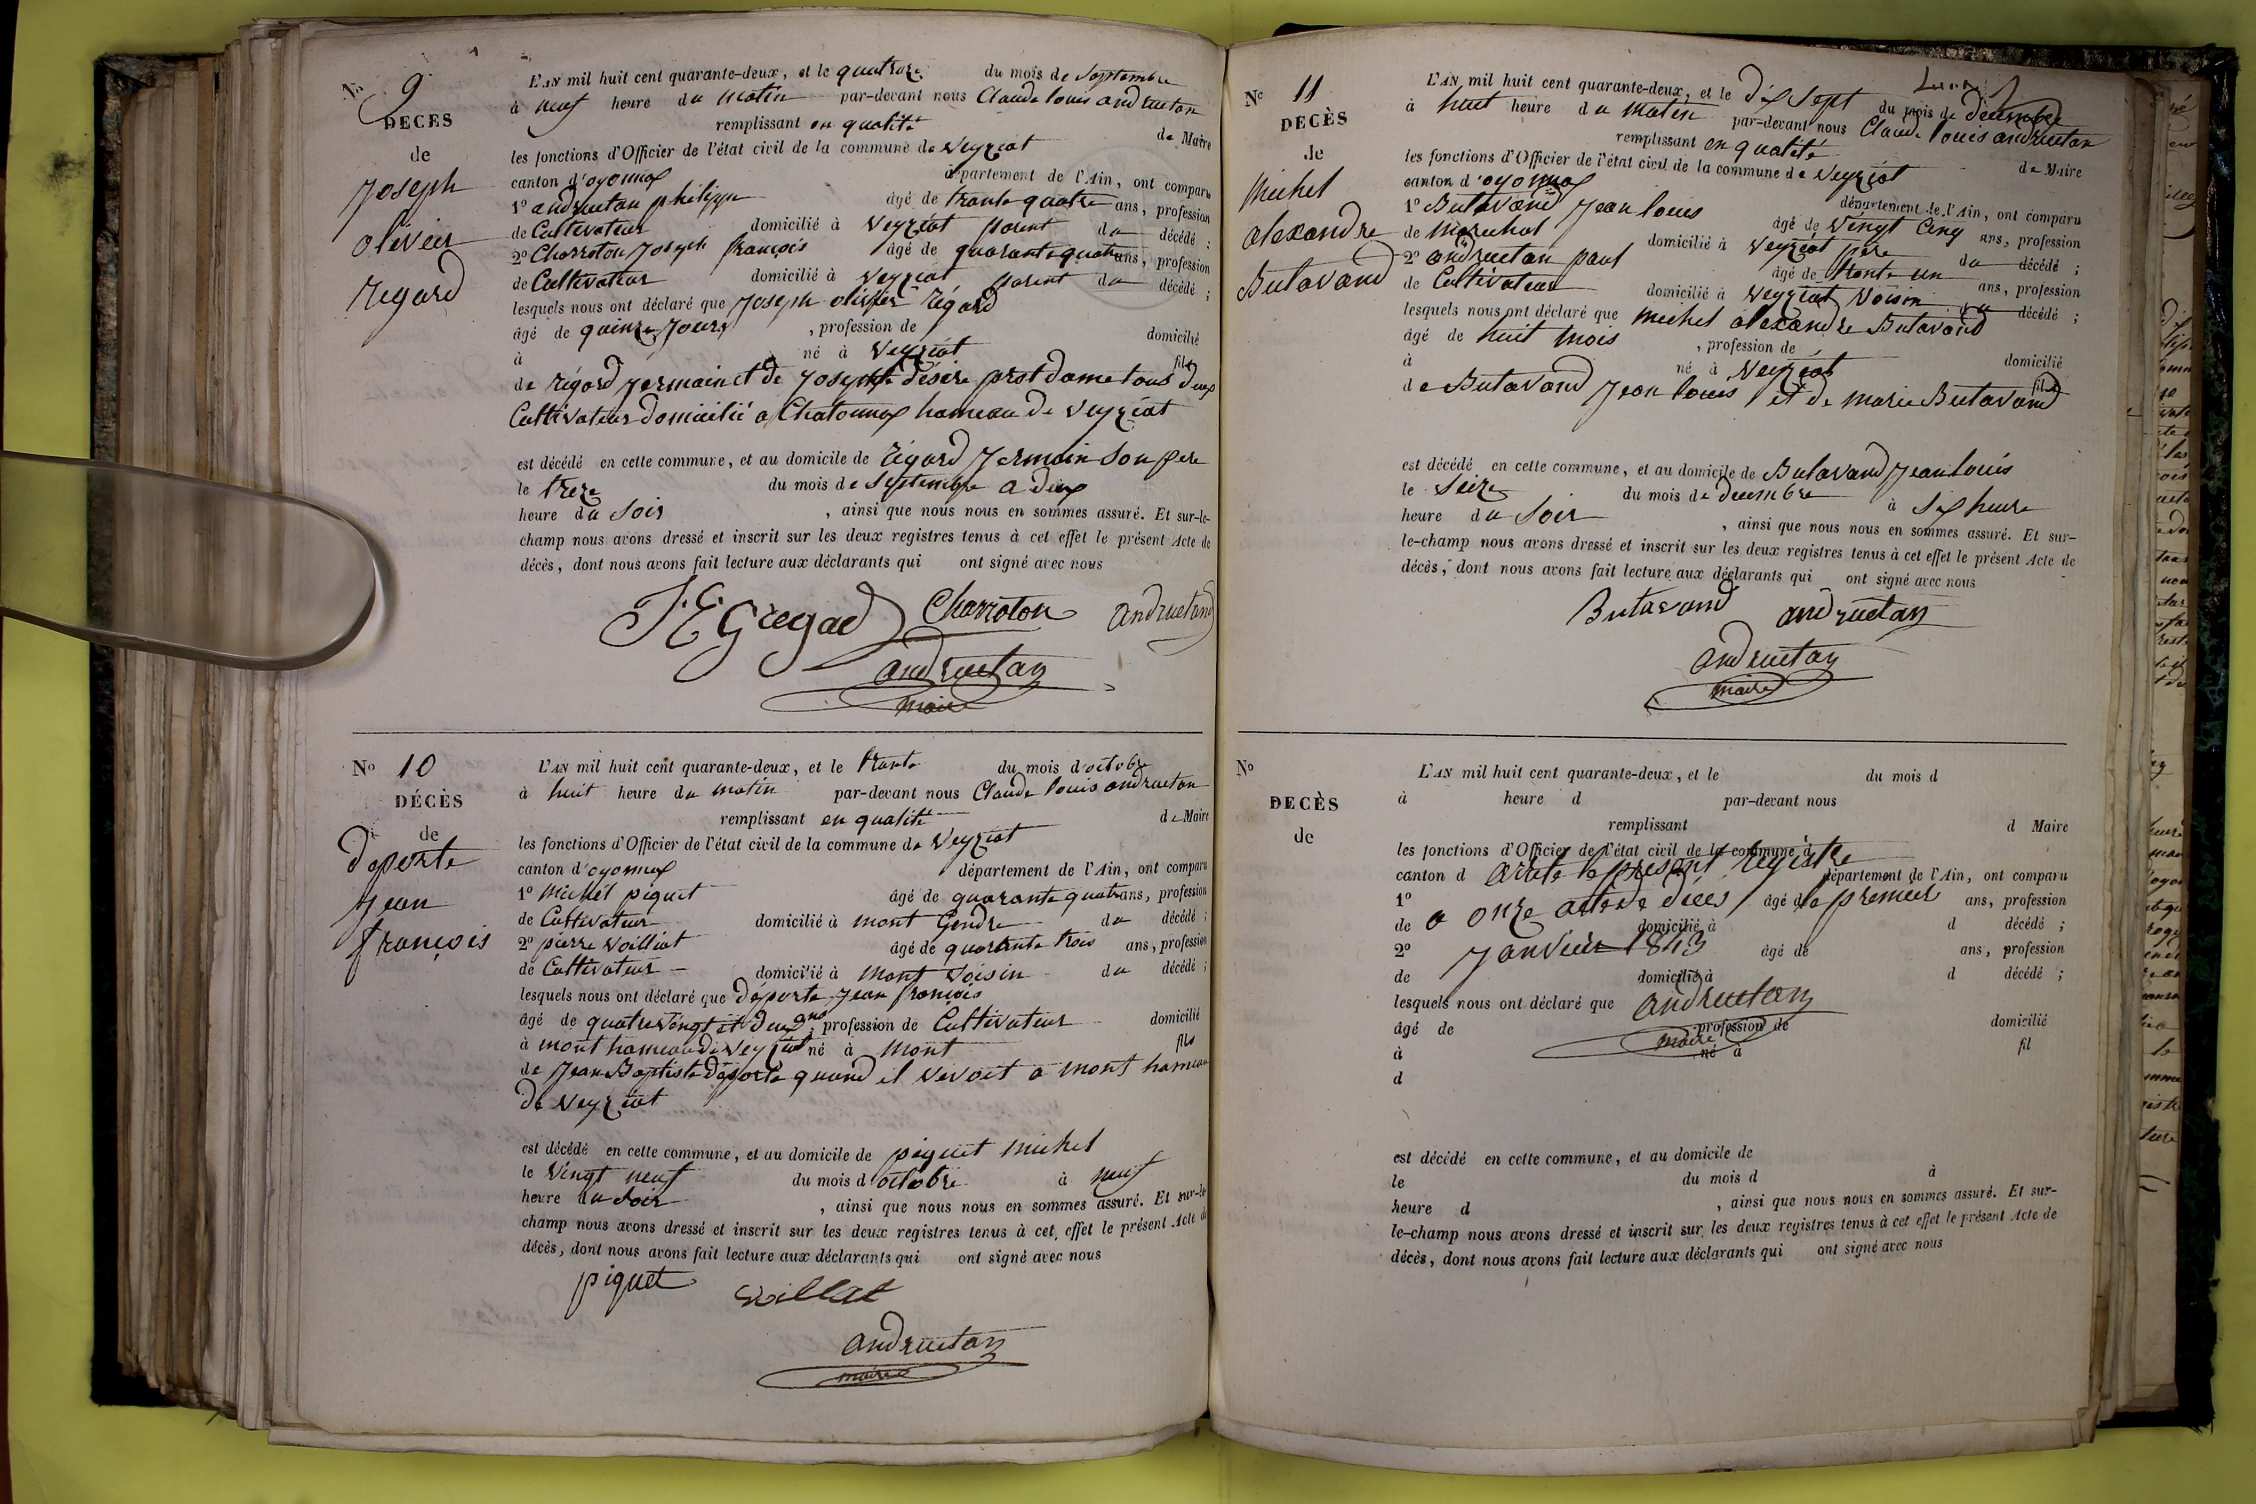 No 9
DÉCÈS
de
Joseph
olivier
Regard
L'AN mil huit cent quarante-deux, et le quatorze du mois de Septembre
à neuf heure du matin par-devant nous Claude louis andruetan
remplissant en qualité de Maire
les fonctions d'Officier de l'état civil de la commune de Veyziat
canton d'oyonnax département de l'Ain, ont comparu
1o andruetan philippe âgé de trante quatre ans, profession
de Cultivateur domicilié à Veyziat parent du décédé ;
2o Charroton Joseph françois âgé de quarante quatre ans, profession
de Cultivateur domicilié à Veyziat parent du décédé ;
lesquels nous ont déclaré que Joseph olivier régard
âgé de quinze jours , profession de domicilié
à né à Veyziat fils
de régard Jermain et de Josephte désire prost dame tous deux
Cultivateur domicilié a Chatonnax hameau de Veyziat
est décédé en cette commune, et au domicile de régard Jermain Son pere
le treze du mois de Septembre a deux
heure du Soir , ainsi que nous nous en sommes assuré. Et sur-le-
champ nous avons dressé et inscrit sur les deux registres tenus à cet effet le présent Acte de
décès, dont nous avons fait lecture aux déclarants qui ont signé avec nous
Charroton andruetan
andruetan
maire
No 10
DÉCÈS
de
déporte
Jean
françois
L'AN mil huit cent quarante-deux, et le trante du mois d'octobre
à huit heure du matin par-devant nous Claude louis andruetan
remplissant en qualité de Maire
les fonctions d'Officier de l'état civil de la commune de Veyziat
canton d'oyonnax département de l'Ain, ont comparu
1o Michel piquet âgé de quarante quatre ans, profession
de Cultivateur domicilié à mont Gendre du décédé ;
2o pierre Voilliat âgé de quarante trois ans, profession
de Cultivateur domicilié à Mont Voisin du décédé ;
lesquels nous ont déclaré que déporte Jean françois
âgé de quatre Vingt et deux ans, profession de Cultivateur domicilié
à mont hameau de Veyziat né à Mont fils
de Jean Baptiste déporte quand il vevoit a Mont hameau
de Veyziat
est décédé en cette commune, et au domicile de piquet michel
le Vingt neuf du mois d'octobre à neuf
heure du Soir , ainsi que nous nous en sommes assuré. Et sur-le-
champ nous avons dressé et inscrit sur les deux registres tenus à cet effet le présent Acte de
décès, dont nous avons fait lecture aux déclarants qui ont signé avec nous
piquet Voillat
andruetan
maire
No 11
DÉCÈS
de
Michel
alexandre
Butavand
L'AN mil huit cent quarante-deux, et le dix Sept du mois de décembre
à huit heure du matin par-devant nous Claude louis andruetan
remplissant en qualité de Maire
les fonctions d'Officier de l'état civil de la commune de Veyziat
canton d'oyonnax département de l'Ain, ont comparu
1o Butavand Jean louis âgé de Vingt Cinq ans, profession
de marechal domicilié à Veyziat père du décédé ;
2o andruetan paul âgé de trante un ans, profession
de Cultivateur domicilié à Veyziat Voisin du décédé ;
lesquels nous ont déclaré que michel alexandre Butavand
âgé de huit mois , profession de domicilié
à né à Veyziat fils
de Butavand Jean louis et de marie Butavand
est décédé en cette commune, et au domicile de Butavand Jean louis
le Seize du mois de decembre à Six heure
heure du Soir , ainsi que nous nous en sommes assuré. Et sur-
le-champ nous avons dressé et inscrit sur les deux registres tenus à cet effet le présent Acte de
décès, dont nous avons fait lecture aux déclarants qui ont signé avec nous
Butavand andruetan
andruetan
maire
No
DECÈS
de
L'AN mil huit cent quarante-deux, et le du mois d
à heure d par-devant nous
remplissant d Maire
les fonctions d'Officier de l'état civil de la commune d
canton d département de l'Ain, ont comparu
arrêté le présent registre
1o âgé de ans, profession
a onze acte de décès le premier
de domicilié à d décédé ;
2o âgé de ans, profession
Janvier 1843
de domicilié à d décédé ;
lesquels nous ont déclaré que andruetan
âgé de , profession de domicilié
maire
à né à fil
d
est décédé en cette commune, et au domicile de
le du mois d à
heure d , ainsi que nous nous en sommes assuré. Et sur-
le-champ nous avons dressé et inscrit sur les deux registres tenus à cet effet le présent Acte de
décès, dont nous avons fait lecture aux déclarants qui ont signé avec nous